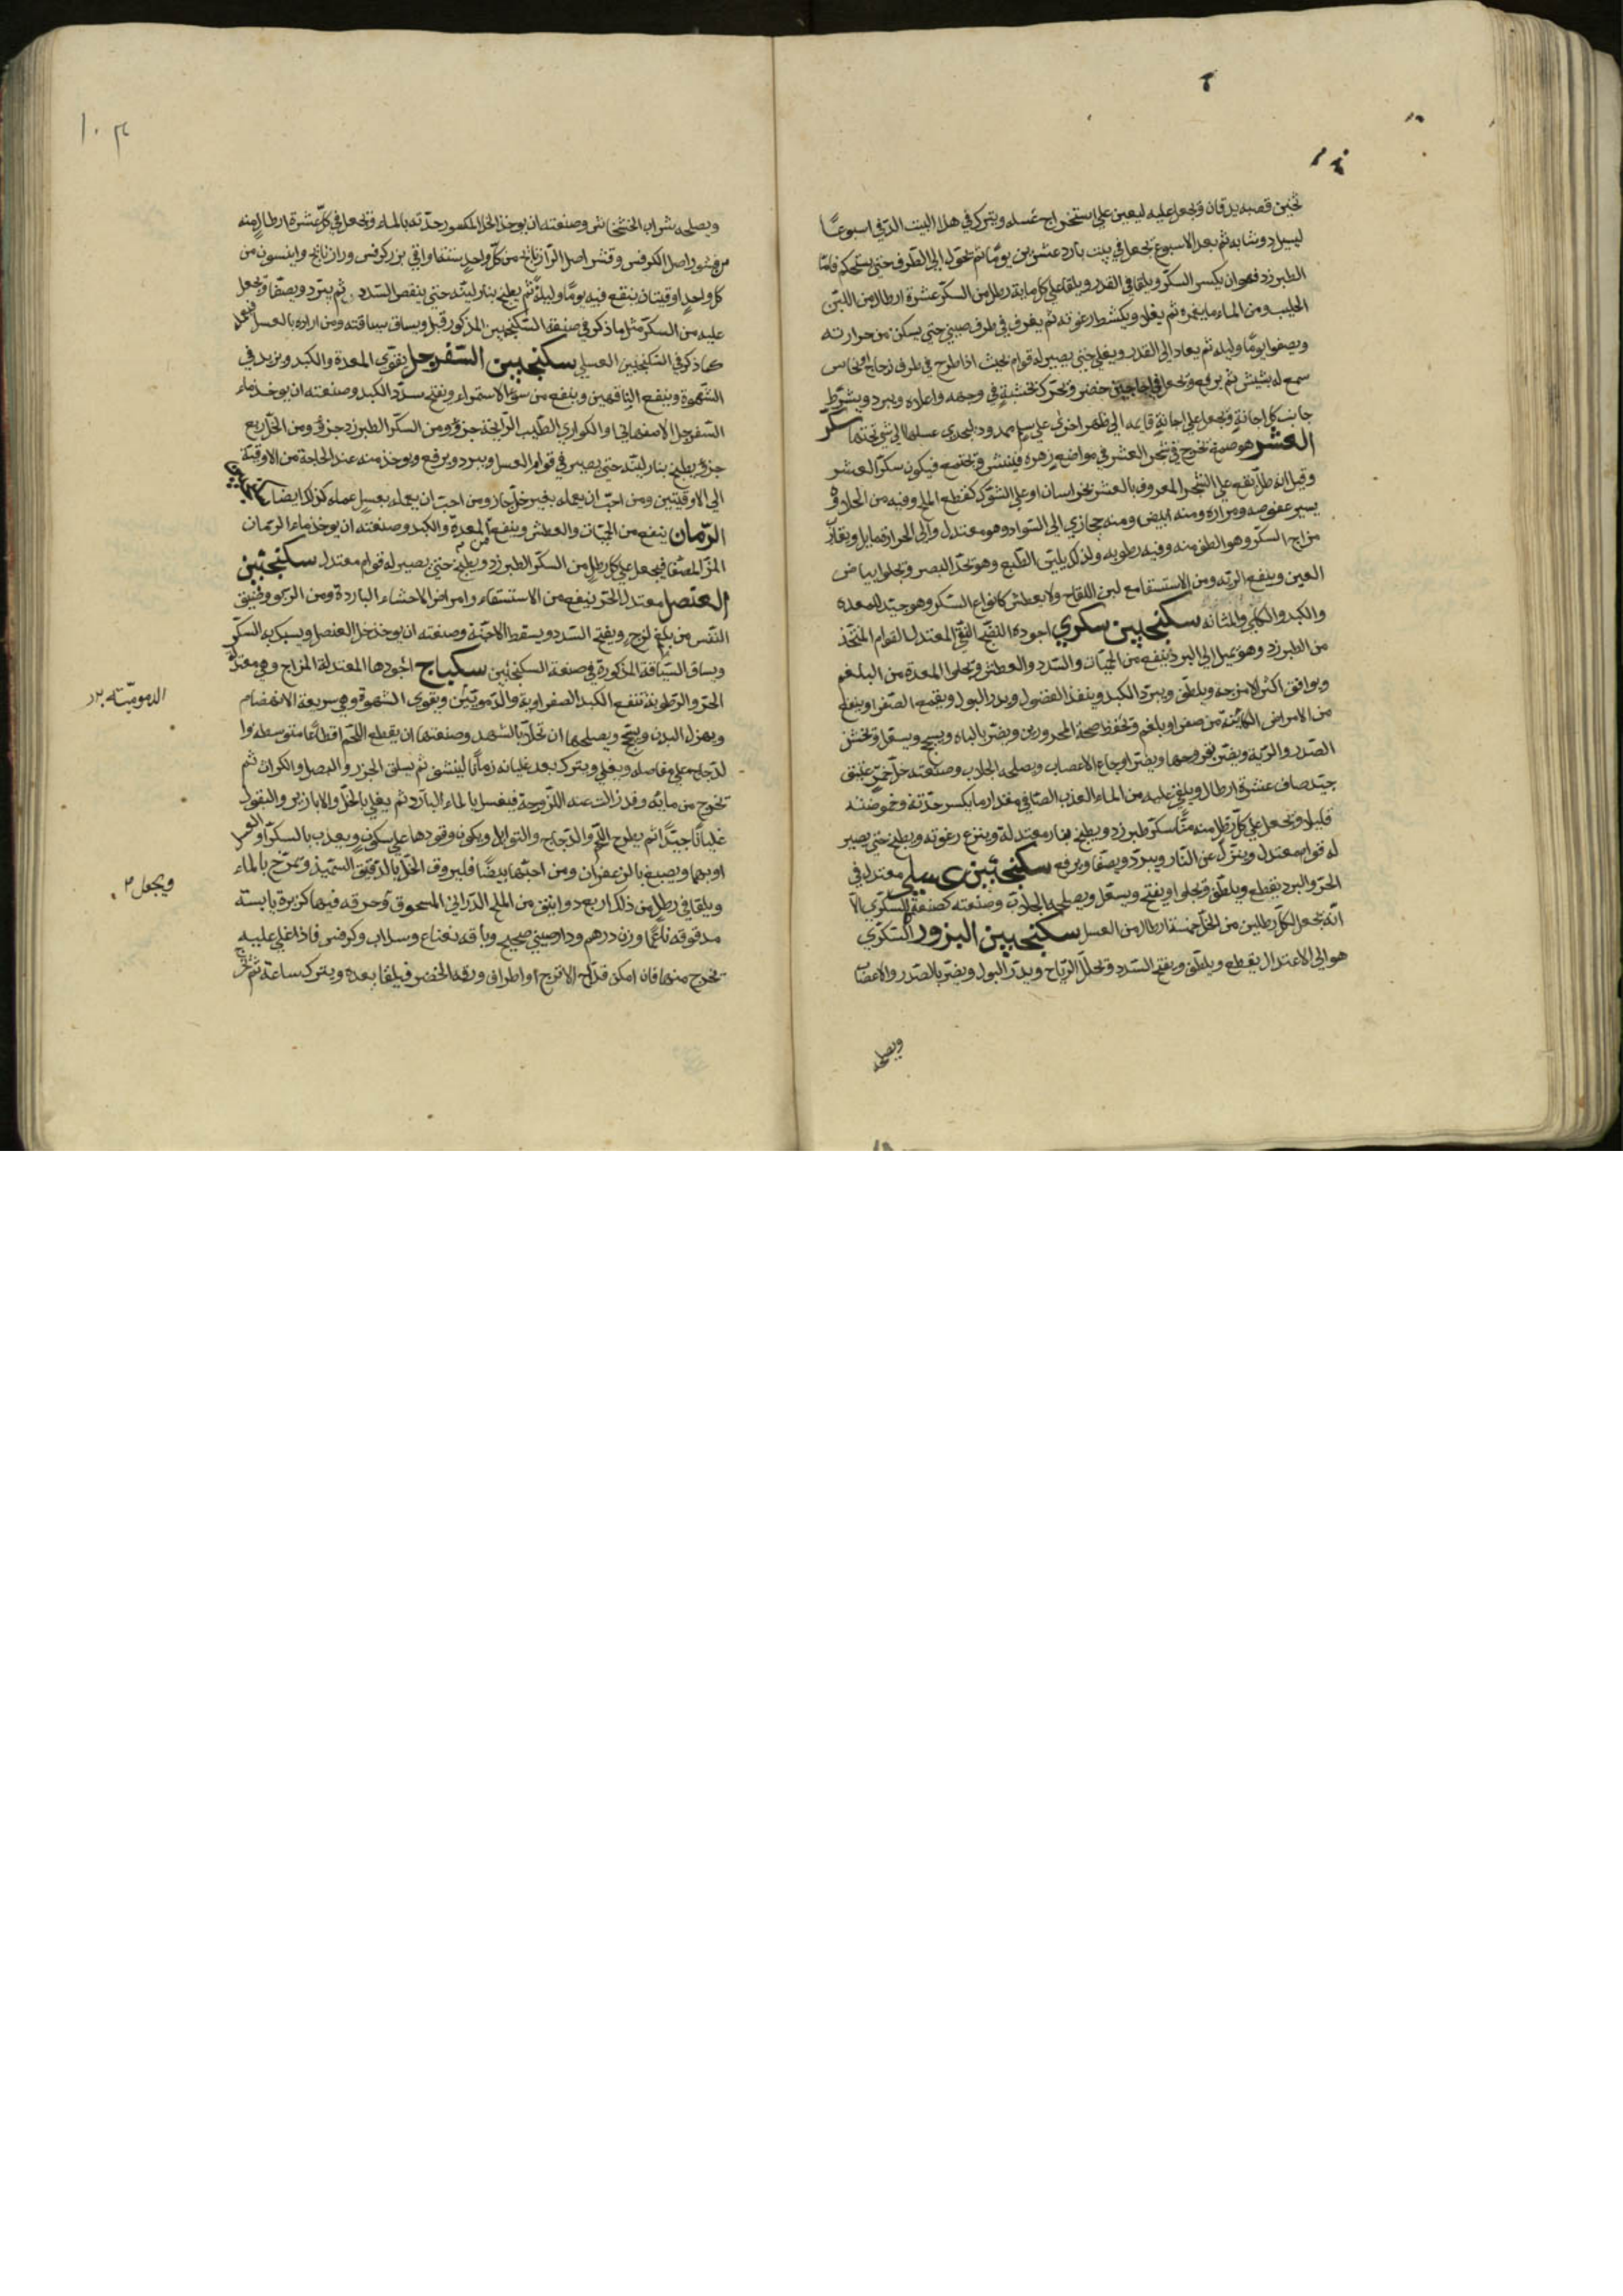 ثخين قصبه يدقان ويجعل عليه ليعين على استخراج عسله ويترك في هذا البيت الدفي اسبوعًا
ليسيل دوشابه ثم بعد الاسبوع يجعل في بيت بارد عشرين يومًا ثم يحول الى الظرف حتى يستحكم فامّا
الطبرزد فهو ان يكسر السكر ويلقا في القدر ويلقا على كل ماية رطل من السكر عشرة ارطال من اللبن
الحليب ومن الماء ما يغمره ثم يغلى ويكشط رغوته ثم يغرف في ظرف صيني حتى يسكن من حرارته
ويصفوا يومًا وليله ثم يعاد الى القدر ويغلي حتى يصير له قوام بحيث اذا طرح في ظرف زجاج او نحاس
سمع له نشيش ثم يرفع ويجعل في اجاجين خضر ويحرك بخشبة في وجهه واعلاه ويبرد ويشرط
جانب كل اجانة ويجعل على اجانة قايمه الى ظهر اخرى على ممدود ليجري عسلها الى شي تحتها سكر
العشر هو صمغ يخرج في شجر العشر في مواضع زهره فينشى ويجتمع فيكون سكر العشر
وقيل انه طل يقع على الشجر المعروف بالعشر بخراسان او على الشوك كقطع الملح وفيه من الحلاوة
يسير عفوصه ومراره ومنه ابيض ومنه حجازي الى السواد وهو معتدل والى الحرارة مايل ويقارب
مزاج السكر وهو الطف منه وفيه رطوبه ولذلك يليّن الطبع وهو يحدّ البصر ويجلوا بياض
العين وينفع الريه ومن الاستسقا مع لبن اللقاح ولا يعطش كانواع السكر وهو جيد للمعده
والكبد والكلى والمثانه سكنجبين سكري اجوده النقي المعتدل القوام المتخذ
من الطبرزد وهو يميل الى البرد ينفع من الحميات والسدد والعطش ويجلوا المعدة من البلغم
ويوافق اكثر الامزجه ويلطف ويبرد الكبد وينفذ الفضول ويدر البول ويقمع الصفرا وينفع
من الامراض الكائنة من صفرا وبلغم ويحفظ صحة المحرورين ويضر بالباه ويسحج ويسعل ويخشن
الصدر والرية ويضر بقروحها ويضر اوجاع الاعصاب ويصلحه الجلاب وصنعته خل خمر عتيق
جيد صاف عشرة ارطال ويلقى عليه من الماء العذب الصافي مقدار ما يكسر حدته وحموضته
قليلا ويجعل على كل رطل منه منًّا سكر طبرزد ويطبخ بنار معتدلة وينزع رغوته ويطبخ حتى يصير
له قوام معتدل وينزل عن النار ويبرد ويصفا ويرفع سكنجبين عسلي معتدل في
الحر والبرد يقطع ويلطف ويجلوا ويفتح ويسعّل ويصلحه الجلاب وصنعته كصنعة السكري الا
انه يجعل لكل رطلين من الخل خمسة ارطال من العسل سكنجبين البزور السكري
هو الى الاعتدال يقطع ويلطف ويفتح السدد ويحلل الرياح ويدر البول ويضر بالصدر والاعصاب
ويصلحه
١٠٣
ويصلحه شراب الخشخاش وصنعته ان يوخذ الخل المكسور حدته بالماء ويجعل في كل عشرة ارطال منه
من قشور اصل الكرفس وقشر اصل الرازيانج من كل واحد ستة اواقي بزر كرفس ورازيانج وانيسون من
كل واحد اوقيتان ينقع فيه يومًا وليلة ثم يطبخ بنار لينة حتى ينقص السدس ثم يبرد ويصفا ويجعل
عليه من السكر مثل ما ذكر في صنعة السكنجبين المذكور قبل ويساق سياقته ومن اراده بالعسل فيعمله
كما ذكر في السكنجبين العسلي سكنجبين السفرجل يقوي المعدة والكبد ويزيد في
الشهوة وينفع الناقهين وينفع من سؤ الاستمراء ويفتح سدد الكبد وصنعته ان يوخذ ماء
السفرجل الاصفهاني او الكواري الطيب الرايحة جزؤ ومن السكر الطبرزد جزؤ ومن الخل ربع
جزؤ يطبخ بنار لينة حتى يصير في قوام العسل ويبرد ويرفع ويوخذ منه عند الحاجة من الاوقية
الى الاوقيتين ومن احب ان يعمله بغير خل جاز ومن احب ان يعمله بعسل عمله كذلك ايضا سكنجبين
الرمان ينفع من الحميات والعطش وينفع المعدة والكبد وصنعته ان يوخذ ماء الرمان
المز المصفا فيجعل على كل رطل من السكر الطبرزد ويطبخ حتى يصير له قوام معتدل سكنجبين
العنصل معتدل الحر ينفع من الاستسقاء وامراض الاحشاء الباردة ومن الربو وضيق
النفس من بلغم لزج ويفتح السدد ويسقط الاجنة وصنعته ان يوخذ خل العنصل ويسبك به السكر
ويساق السياقة المذكورة في صنعة السكنجبين سكباج اجودها المعتدلة المزاج وهي معتدلة
الحر والرطوبة تنفع الكبد الصفراوية والدمويين ويقوي الشهوة وهي سريعة الانهضام
الدمويّة
ويهزل البدن ويسحج ويصلحها ان تحلا بالشهد وصنعتها ان يقطع اللحم اقطاعًا متوسطة او
لدجاج على مفاصله ويغلي ويترك بعد غليانه زمانًا لينشف ثم يسلق الجزر والبصل والكراث ثم
تخرج من مايه وقد زالت عنه اللزوجة فيغسل بالماء البارد ثم يغلي بالخل والابازير والبقول
غليانًا جيدًا ثم يطرح اللحم والدجاج والتوابل ويكون وقودها على سكون ويعذب بالسكر او العسل
او بهما ويصبغ بالزعفران ومن احبها بيضًا فليروق الخل بالدقيق السميذ ويمزج بالماء
ويجعل
ويلقا في رطل من ذلك اربع دوانق من الملح الدراني المسحوق وخرقه فيها كزبرة يابسة
مدقوقه ناعمًا وزن درهم ودارصيني صحيح وباقه نعناع وسداب وكرفس فاذا غلي عليه
تخرج منها فان امكن قداح الاترج او اطراف ورقه الخضر فيلقا بعده ويترك ساعة ثم تخرج